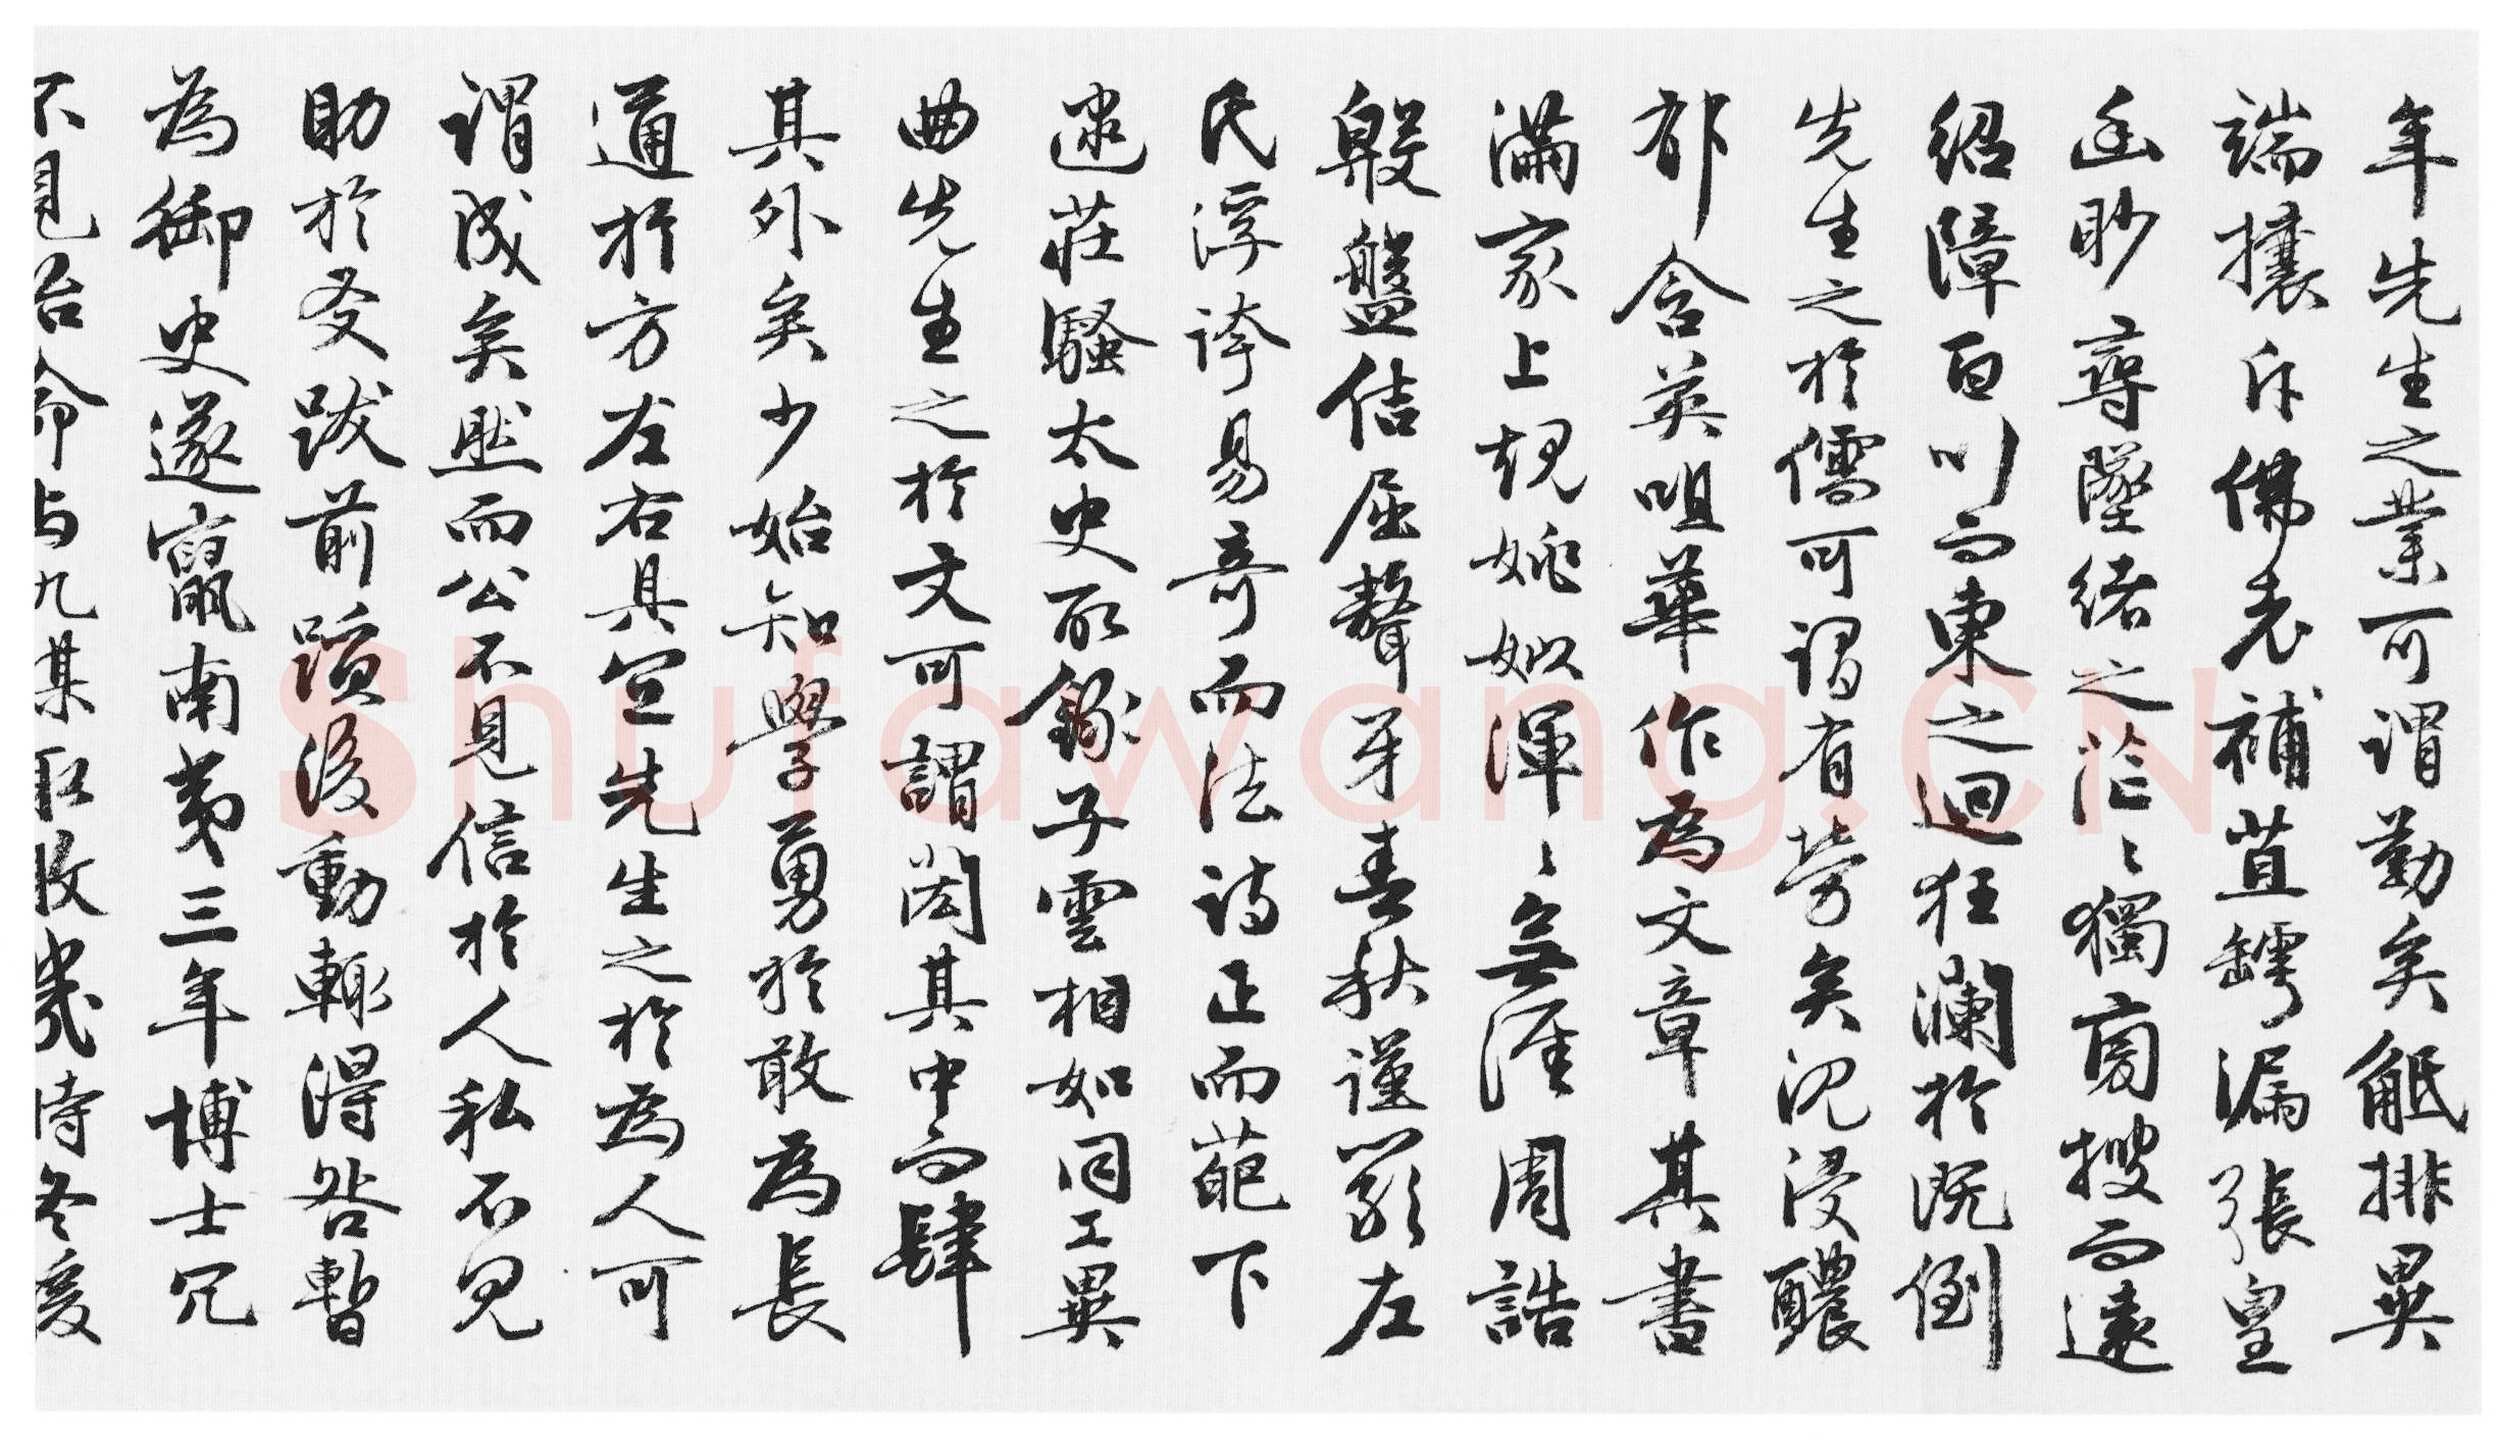 年先生之業可謂勤矣觝排異
端攘斥佛老補苴罅漏張皇
幽眇尋墜緒之茫〻獨旁搜而遠
紹障百川而東之迴狂瀾於既倒
先生之於儒可謂有勞矣沉浸醲
郁含英咀華作為文章其書
滿家上規姚姒渾〻無涯周誥
殷盤佶屈聱牙春秋謹嚴左
氏浮誇易奇而法詩正而葩下
逮莊騷太史所錄子雲相如同工異
曲先生之於文可謂閎其中而肆
其外矣少始知學勇於敢為長
通於方左右具宜先生之於為人可
謂成矣然而公不見信於人私不見
助於友跋前躓後動輒得咎暫
為御史遂竄南夷三年博士冗
不見治命与仇謀取敗幾時冬暖
Shufawang.CN